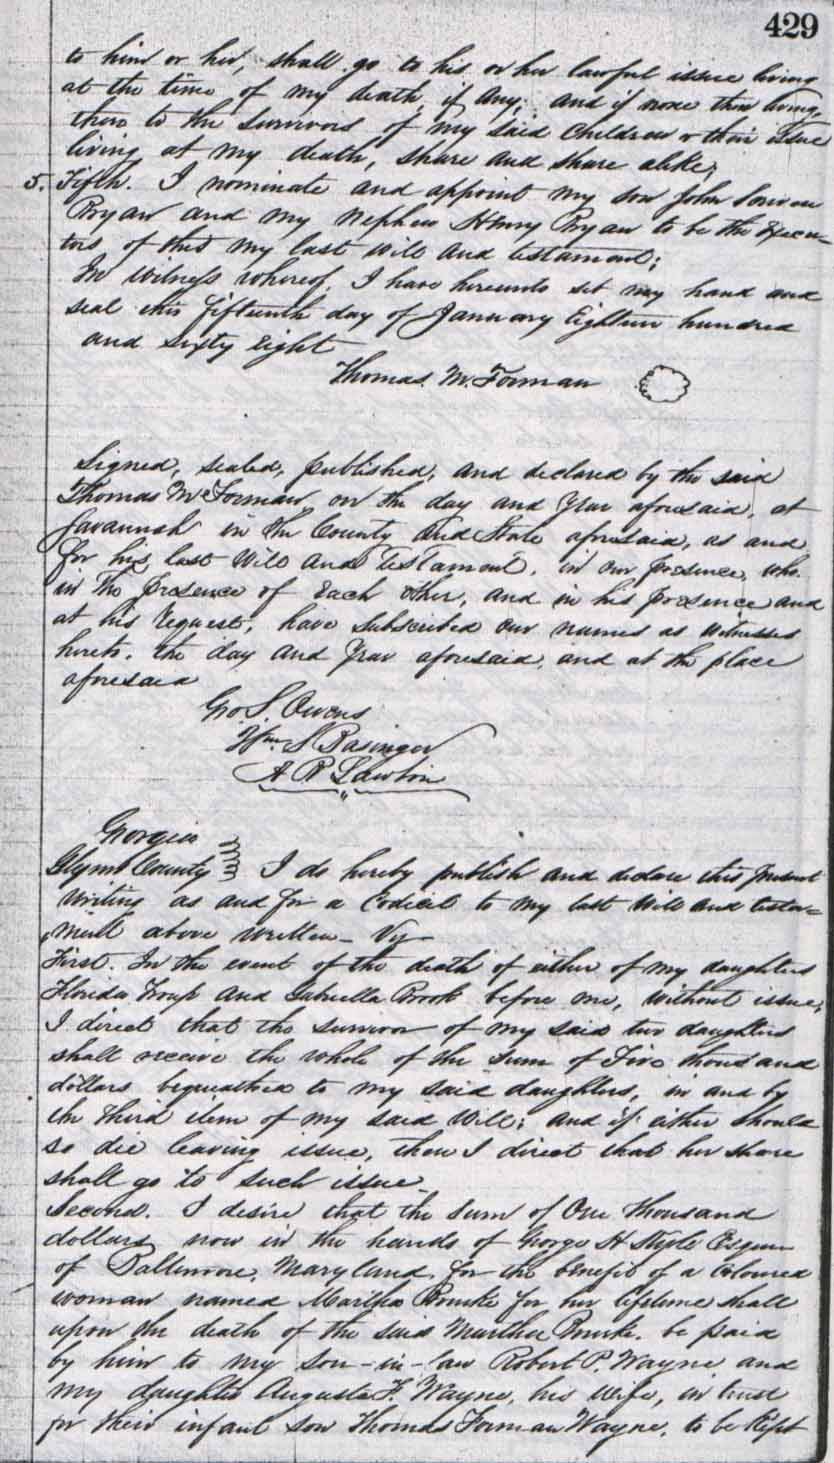 429
to him or her, shall go to his or her lawful issue living
at the time of my death, if any; and if none then living,
then to the survivors of my said children or their issue
living at my death, share and share alike;
5. Fifth. I nominate and appoint my son John
Bryan and my nephew Henry Bryan to be the Execu=
tors of this my last will and testament;
In witness whereof, I have hereunto set my hand and
seal this fifteenth day of January Eighteen hundred
and sixty eight
Thomas. M. Forman
Signed, sealed, published, and declared by the said
Thomas M Forman, on the day and Year aforesaid, at
Savannah in the County and State aforesaid, as and
for his last Will and Testament, in our presence, who
in the presence of Each other, and in his presence and
at his request, have subscribed our names as witnesses
hereto, the day and Year aforesaid, and at the place
aforesaid
Geo S. Owens
Wm. S Basinger
A R Lawton
Georgia
Glynn County I do hereby publish and declare this present
writing as and for a Codicil to my last Will and testa=
ment above written - Viz
First. In the event of the death of either of my daughters
Florida Troup and Gabriella Brook before me, without issue,
I direct that the survivor of my said two daughters
shall receive the whole of the sum of Five thousand
dollars bequeathed to my said daughters, in and by
the third item of my said Will; and if either should
so die leaving issue, then I direct that her share
shall go to such issue
Second. I desire that the sum of One thousand
dollars now in the hands of George H
of Baltimore, Maryland, for the benefit of a Coloured
woman named Martha Bourke for her lifetime shall
upon the death of the said Martha Bourke. be paid
by him to my son-in-law Robert P. Wayne and
my daughter Augusta F. Wayne, his wife, in trust
for their infant son Thomas Forman Wayne, to be kept